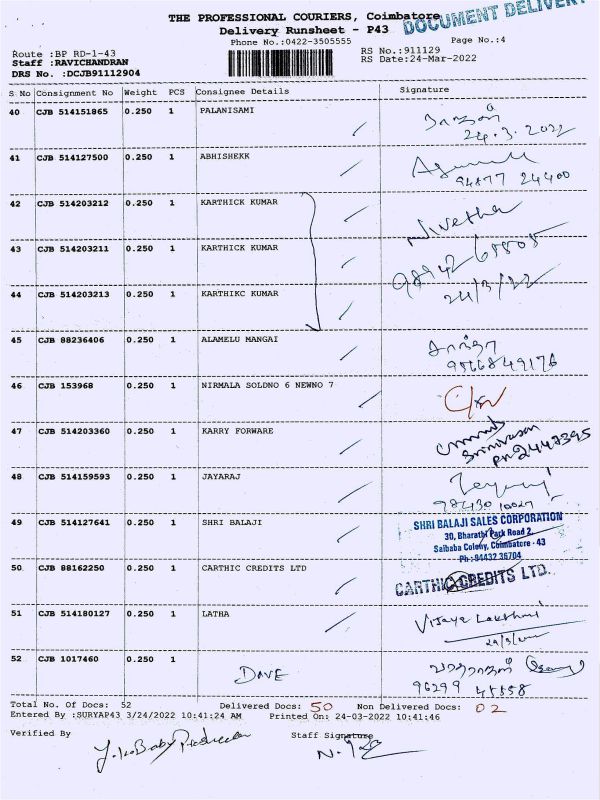 THE PROFESSIONAL COURIERS, Coimbatore
DOCUMENT DELIVERY
Delivery Runsheet - P43
Phone No.:0422-3505555 Page No.:4
Route :BP RD-1-43 RS No.:911129
Staff :RAVICHANDRAN RS Date:24-Mar-2022
DRS No. :DCJB91112904
S No Consignment No Weight PCS Consignee Details Signature
40 CJB 514151865 0.250 1 PALANISAMI
24.3.2022
41 CJB 514127500 0.250 1 ABHISHEKK
94877 24400
42 CJB 514203212 0.250 1 KARTHICK KUMAR Nivetha
43 CJB 514203211 0.250 1 KARTHICK KUMAR 98942 65805
44 CJB 514203213 0.250 1 KARTHIKC KUMAR 24/3/22
45 CJB 88236406 0.250 1 ALAMELU MANGAI
9566849176
46 CJB 153968 0.250 1 NIRMALA SOLDNO 6 NEWNO 7
47 CJB 514203360 0.250 1 KARRY FORWARE
Srinivasan
PH 2447395
48 CJB 514159593 0.250 1 JAYARAJ
98430 10027
49 CJB 514127641 0.250 1 SHRI BALAJI SHRI BALAJI SALES CORPORATION
30, Bharathi Park Road 2,
Saibaba Colony, Coimbatore - 43
Ph : 94432 36704
50 CJB 88162250 0.250 1 CARTHIC CREDITS LTD CARTHIC CREDITS LTD.
51 CJB 514180127 0.250 1 LATHA Vijaya Lakshmi
52 CJB 1017460 0.250 1 DAVE
96299 45558
Total No. Of Docs: 52 Delivered Docs: 50 Non Delivered Docs: 02
Entered By :SURYAP43 3/24/2022 10:41:24 AM Printed On: 24-03-2022 10:41:46
Verified By Staff Signature